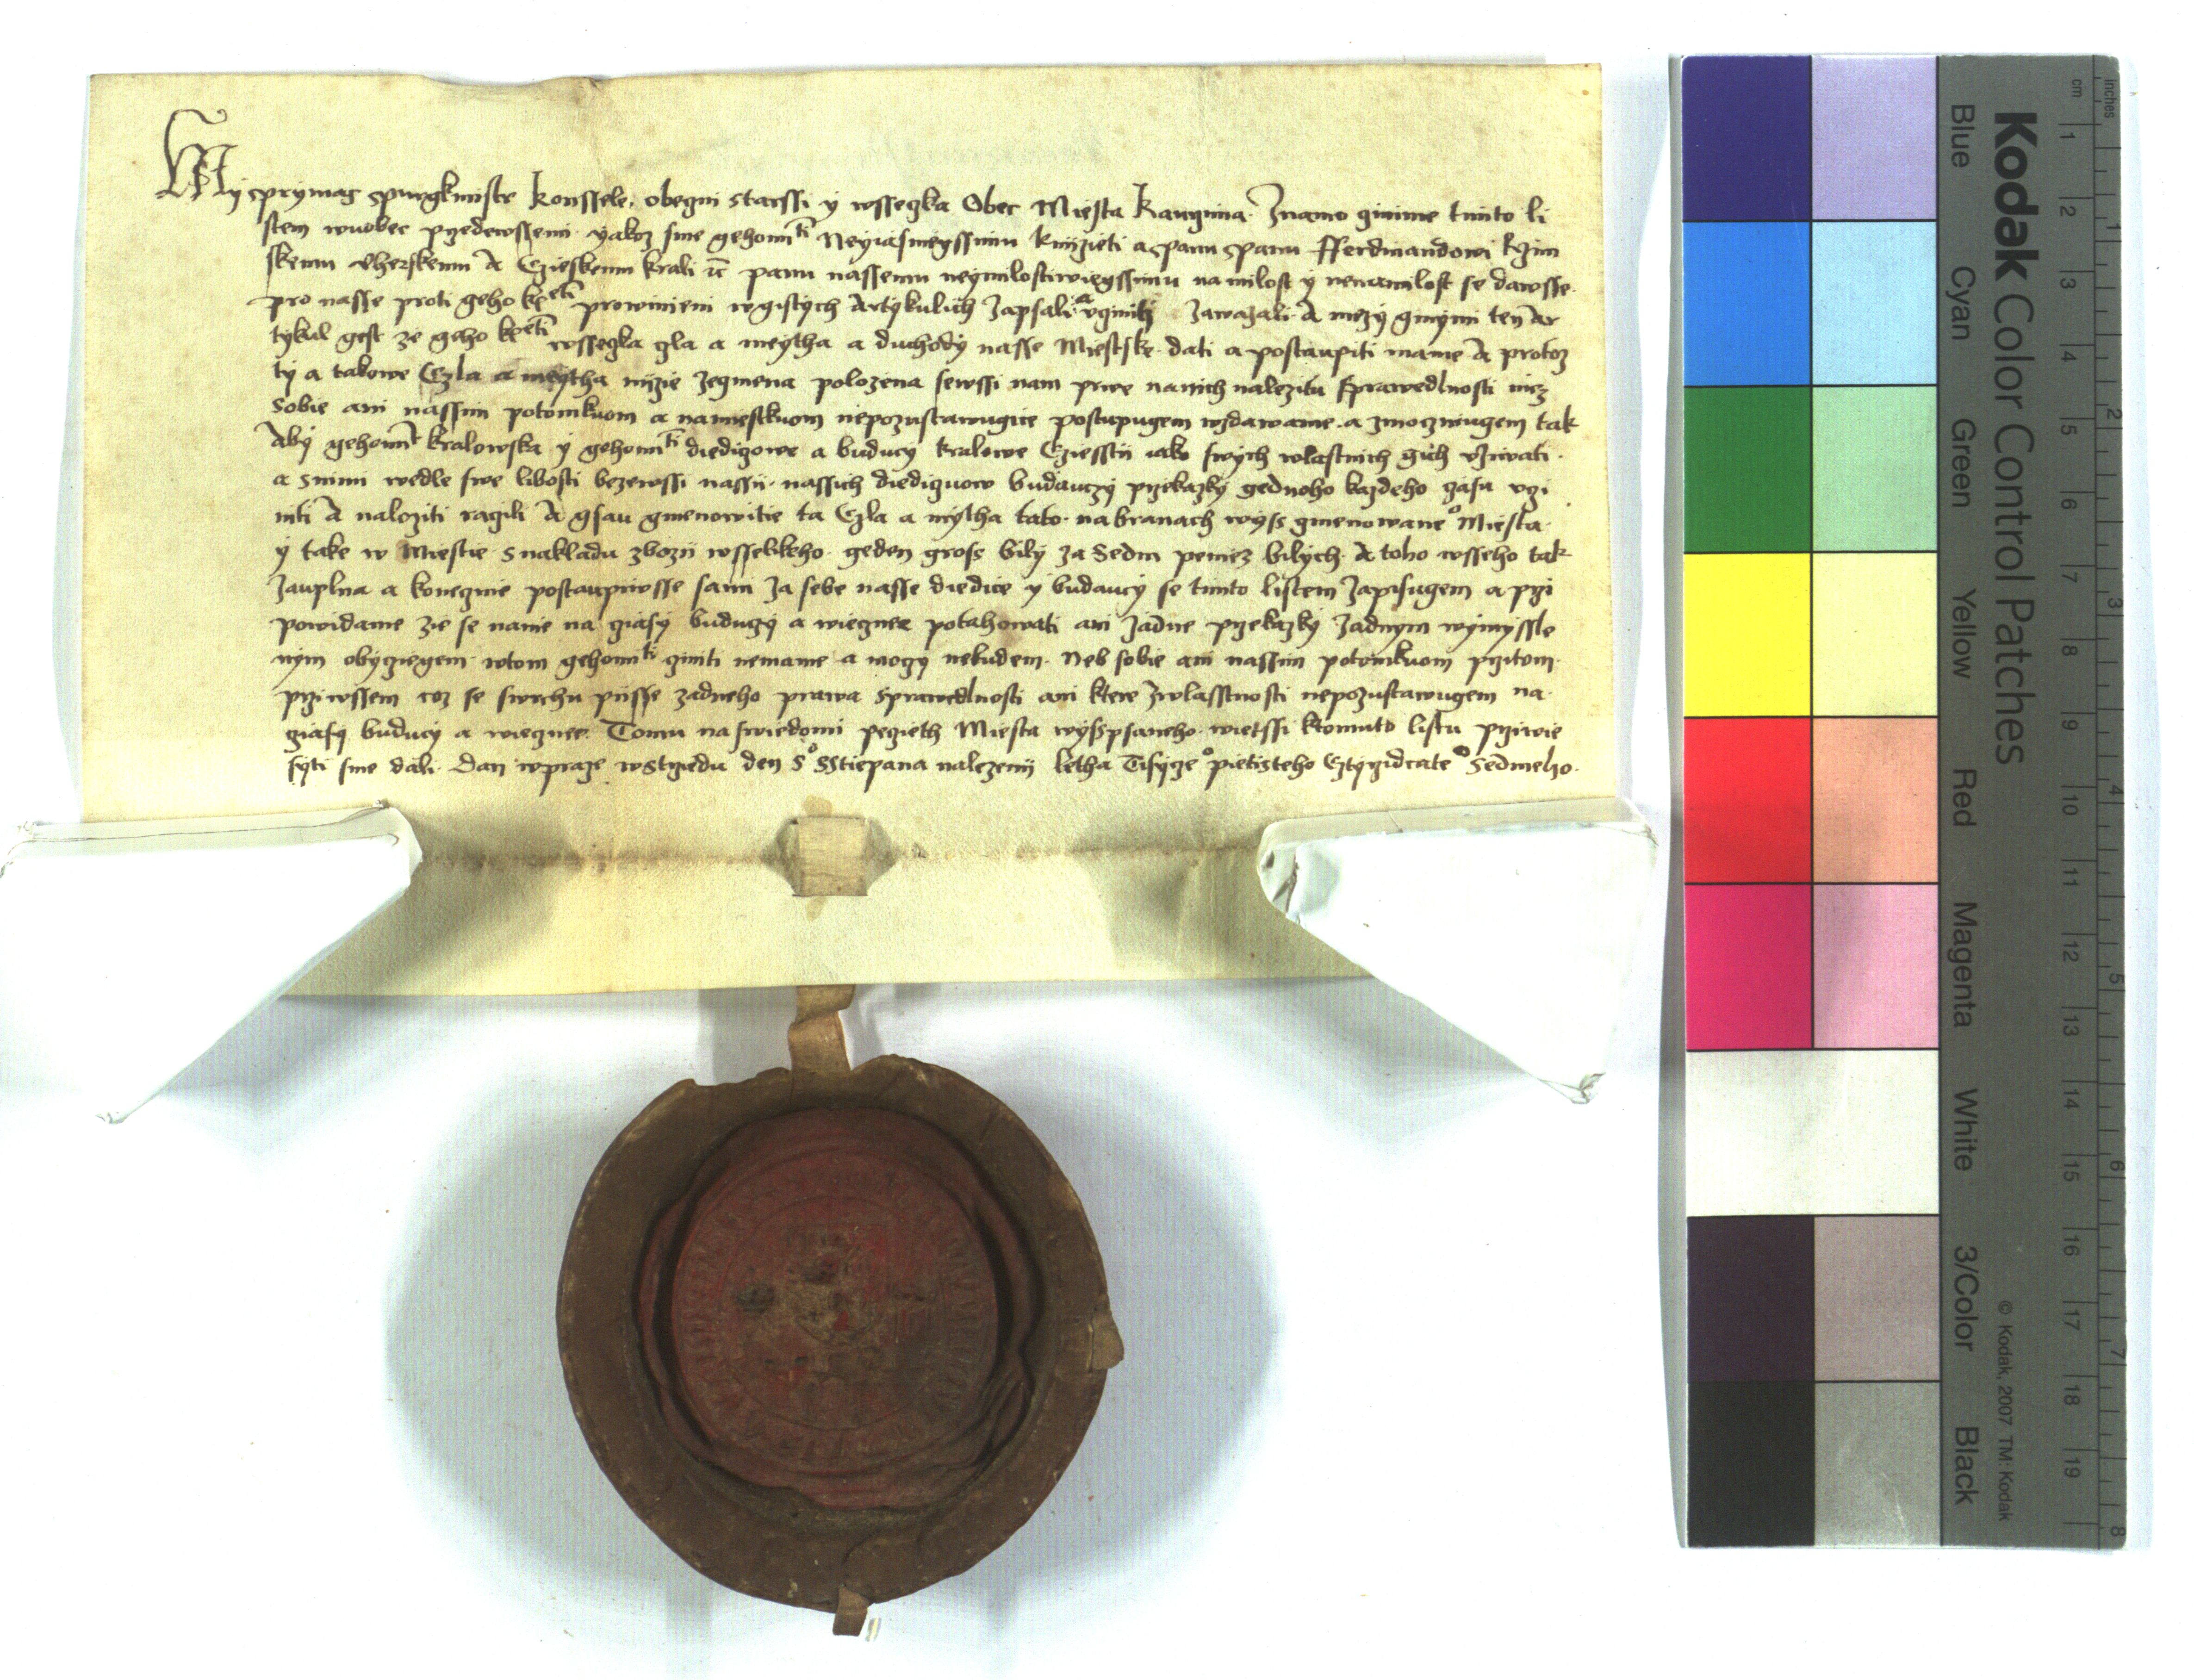 My sprymas spurgkmistr konssele, obeczni starssi y wsseczka Obec Miesta Kaurzima. Znamo czinime tiimto li
stem wuobec przedewssemi. yakoz sme gehomti Neyiasneyssimu knijzieti a panu panu Fferdinandowi Rzim
skemu Uherskemu A Czieskemu krali ꝛc panu nassemu neymilostiwieyssimu na milost y nemilost se dawsse.
pro nasse proti geho kⷬetī prowinieni w gistych Artykulich Zapsali a vczinili Zawazali. A mezy ginymi ten Ar
tykul gest ze geho kⷬetī wssegka cla a meytha a duchody nasse Miestske. dati a postaupiti mame A protoz
ty a takowe Czla a meytha nijzie zegmena polozena sewssi nam prwe nanich nalezitu Sprawedlnosti nicz
Sobie ani nassim potomkuom a namiestkuom nepozustawugice postupugem wzdawame. a zmoczniugem tak
Aby gehomt kralowska y gehomti diedizowe a buducy kralowe Cziesstij iako swych wlastnich gich vziwati.
a snimi wedle swe libosti bezewssi nassij. nassich diediczuow budauczy przekazky gednoho kazdeho czasu vczi
niti A naloziti raczili A gsau gmenowitie ta Czla a mytha tato. na branach wyss gmenowaneo Miesta.
y take w Miestie s nakladu zbozij wsselikeho. geden gross bily za Sedm peniez bilych. A toho wsseho tak
Zauplna a konecznie postaupiwsse sami za sebe nasse diedice y budaucy se timto listem Zapisugem a przi
powidame zie se nanie na cziasy buduczy a wieczne potahowati ani zadne przekazky zadnym wymyssle
nym obyczegem. wtom gehomti cziniti nemame a moczy nebudem. Neb sobie ani nassim potomkuom przitom.
przi wssem coz se swrchu pijsse zadneho prawa Sprawedlnosti ani ktere zwlasstnosti nepozustawugem na.
cziasy buducy a wieczne. Tomu na swiedomi peczieth Miesta wysspsaneho. wietssi ktomuto listu przi wie
syti sme dali. Dan w praze w strzedu den So SStiepana nalezenij letha Tisyczeo pietisteho Cztyrzidcateo Sedmeho.
Kodak Color Control Patches
© Kodak, 2007 TM: Kodak
Blue Cyan Green Yellow Red Magenta White 3/Color Black
inches 1 2 3 4 5 6 7 8
cm 1 2 3 4 5 6 7 8 9 10 11 12 13 14 15 16 17 18 19